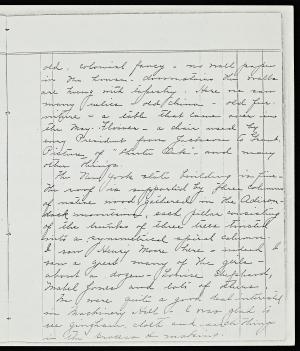 old, colonial fancy - no wall paper
in the house - downstairs the walls
are hung with tapestry. Here we saw
many relics - old china - old fur-
niture - a table that came over in
the May-Flower - a chair used by
every President from Jackson to Grant.
Picture of "Charter Oak" and many
other things.
The New York state building is fine.
The roof is supported by three columns
of native wood gathered in the Adiron-
dack mountains, each pillar consisting
of the trunks of three trees twisted
into a symmetrical spiral column.
I saw Henry More there - in fact I
saw a great many of the girls -
about a dozen - Louise Sheppard,
Mabel Jones and lots of others.
We were quite a good deal interested
in Machinery Hall - I was glad to
see gingham, cloth and such things
in the process of making.